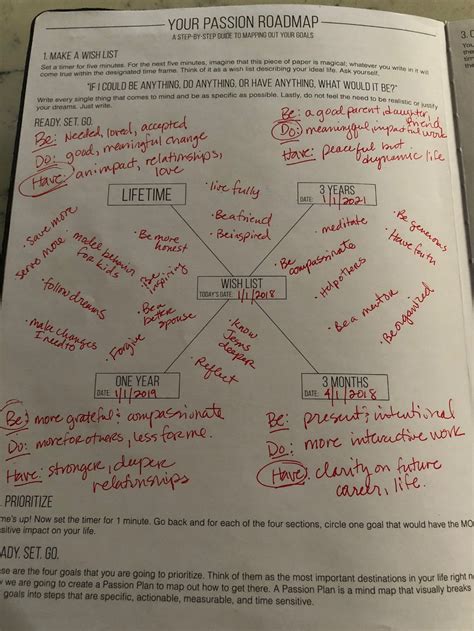 YOUR PASSION ROADMAP
A STEP-BY-STEP GUIDE TO MAPPING OUT YOUR GOALS
1. MAKE A WISH LIST
Set a timer for five minutes. For the next five minutes, imagine that this piece of paper is magical; whatever you write in it will
come true within the designated time frame. Think of it as a wish list describing your ideal life. Ask yourself,
"IF I COULD BE ANYTHING, DO ANYTHING, OR HAVE ANYTHING, WHAT WOULD IT BE?"
Write every single thing that comes to mind and be as specific as possible. Lastly, do not feel the need to be realistic or justify
your dreams. Just write.
READY. SET. GO.
Be: Needed, loved, accepted
Do: good, meaningful change
Have: an impact, relationships,
love
Be: a good parent, daughter,
friend
Do: meaningful impactful work
Have: peaceful but
dynamic life
LIFETIME
3 YEARS
DATE: 1/1/2021
• live fully
• Be a friend
• Be inspired
• Save more
• serve more
• model behavior
for kids
• follow dreams
• make changes
I need to
• Be more
honest
• Be
inspiring
• Be a
better
spouse
• Forgive
• meditate
• Be
compassionate
• Help others
• Be a mentor
• Be generous
• Have faith
• Be organized
WISH LIST
TODAY'S DATE: 1/1/2018
• Know
Jesus
deeper
• Reflect
ONE YEAR
1/1/2019
3 MONTHS
DATE: 4/1/2018
Be: more grateful & compassionate
Do: more for others, less for me.
Have: stronger, deeper
relationships
Be: present & intentional
Do: more interactive work
Have: clarity on future
career, life.
. PRIORITIZE
me's up! Now set the timer for 1 minute. Go back and for each of the four sections, circle one goal that would have the MO
sitive impact on your life.
ADY. SET. GO.
se are the four goals that you are going to prioritize. Think of them as the most important destinations in your life right n
w we are going to create a Passion Plan to map out how to get there. A Passion Plan is a mind map that visually breaks
goals into steps that are specific, actionable, measurable, and time sensitive.